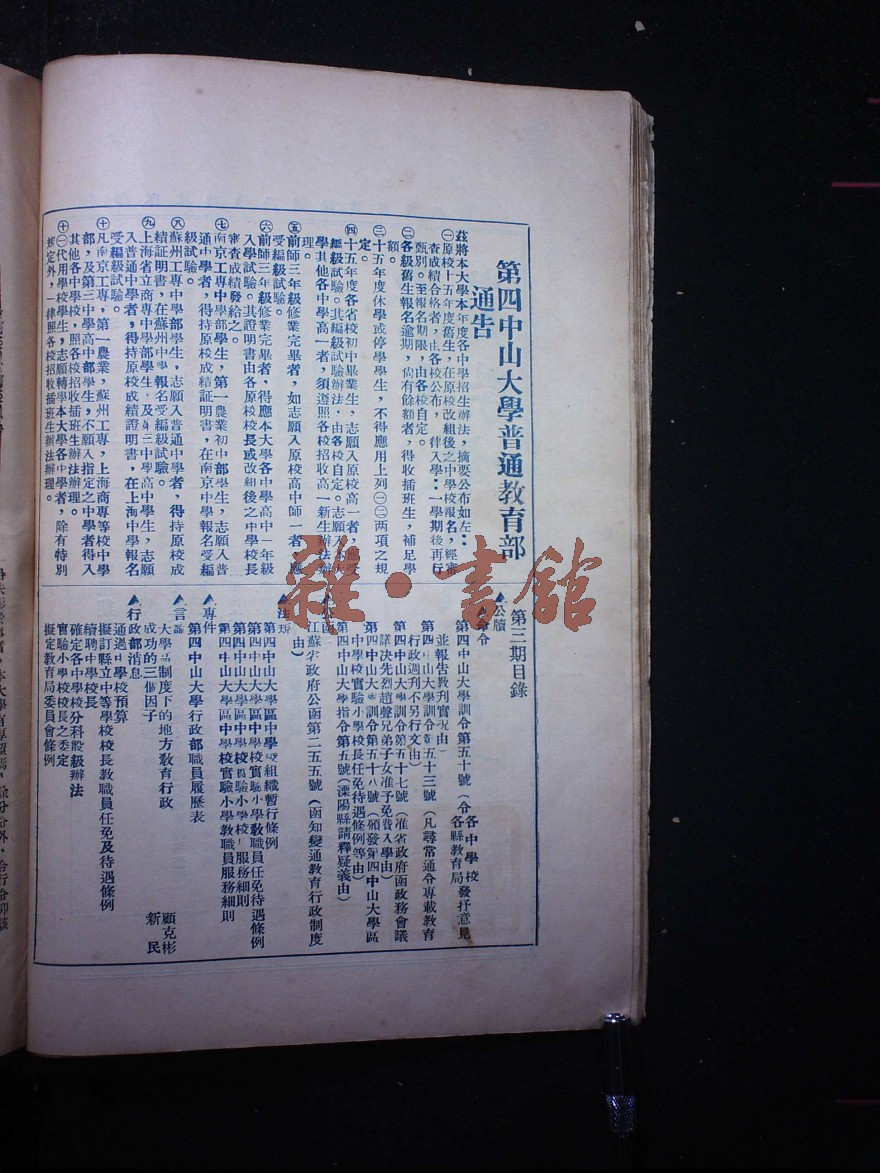 第四中山大學普通教育部
通告
茲將本大學本年度各中學招生辦法，摘要公布如左：
㊀原校十五年度舊生，在原校改組後之中學校報名，經審
查成績合格者，由各校公布，一律入學：一學期後再行
甄別。至報名期限，由各校自定。
㊁各級舊生報名逾期，尚有餘額者，得收插班生，補足學
額。
㊂十五年度休學或停學學生，不得應用上列㊀㊁兩項之規
定。
㊃十五年度各省校初中畢業生，志願入原校高一者，應受
編級試驗。其編級試驗辦法，由各校自定。志願入本大
學其他各中學高一者，須遵照各校招收高一新生辦法辦
理。
㊄前師三年級修業完畢者，如志願入原校高中師一者，應
受編級試驗。
㊅前師三年級修業完畢者，得應本大學各中學高中一年級
入學試驗。其證明書由各原校校長或改組後之中學校長
審查成績發給之。
㊆南京工專中學部學生，第一農業初中部學生，志願入普
通中學者，得持原校成績証明書，在南京中學報名受編
級試驗。
㊇蘇州工專中學部學生，志願入普通中學者，得持原校成
績証明書，在蘇州中學報名受編級試驗。
㊈上海省立商專中學部學生，及第三中學高中學生，志願
入普通中學者，得持原校成績證明書，在上海中學報名
受編級試驗。
㊉凡南京工專，第一農業，蘇州工專，上海商專等校中學
部，及第三中學高中部學生，不願入指定之中學者得入
其他各中學，照各校招收插班生辦法辦理。
㊉㊀代用學校學生，志願轉學本大學各中學者，除有特別
規定外，一律照各校招收插班生辦法辦理。
第三期目錄
▲公牘
▲命令
第四中山大學訓令第五十號（令各中學校各縣教育局發抒意見
並報告教刊實况由）
第四中山大學訓令第五十三號（凡尋常通令專載教育
行政週刊不另行文由）
第四中山大學訓令第五十七號（准省政府函政務會議
議決先烈趙聲兄弟子女准予免費入學由）
第四中山大學訓令第五十八號（頒發第四中山大學區
中學校實驗小學校長任免待遇條例等由）
第四中山大學指令第五號（溧陽縣請釋疑義由）
▲公函
江蘇省政府公函第二五五號（函知變通教育行政制度
由）
▲法規
第四中山大學區中學校組織暫行條例
第四中山大學區中學校實驗小學教職員任免待遇條例
第四中山大學區中學校實驗小學校長服務細則
第四中山大學區中學校實驗小學教職員服務細則
▲專件
第四中山大學行政部職員履歷表
▲言論
大學區制度下的地方教育行政 顧克彬
成功的三個因子 新民
▲行政部消息
通過中學校預算
擬訂縣立中等學校校長教職員任免及待遇條例
續聘中學校長
確定各中學校分科設級辦法
實驗小學校校長之委定
擬定教育局委員會條例
雜·書館